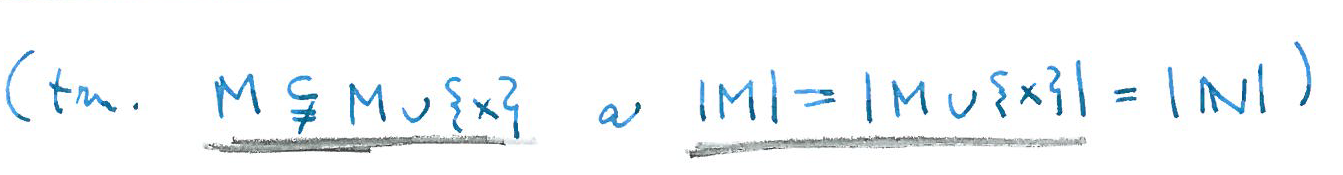 (tzn. M ⊊ M ∪ {x} a |M| = |M ∪ {x}| = |ℕ|)